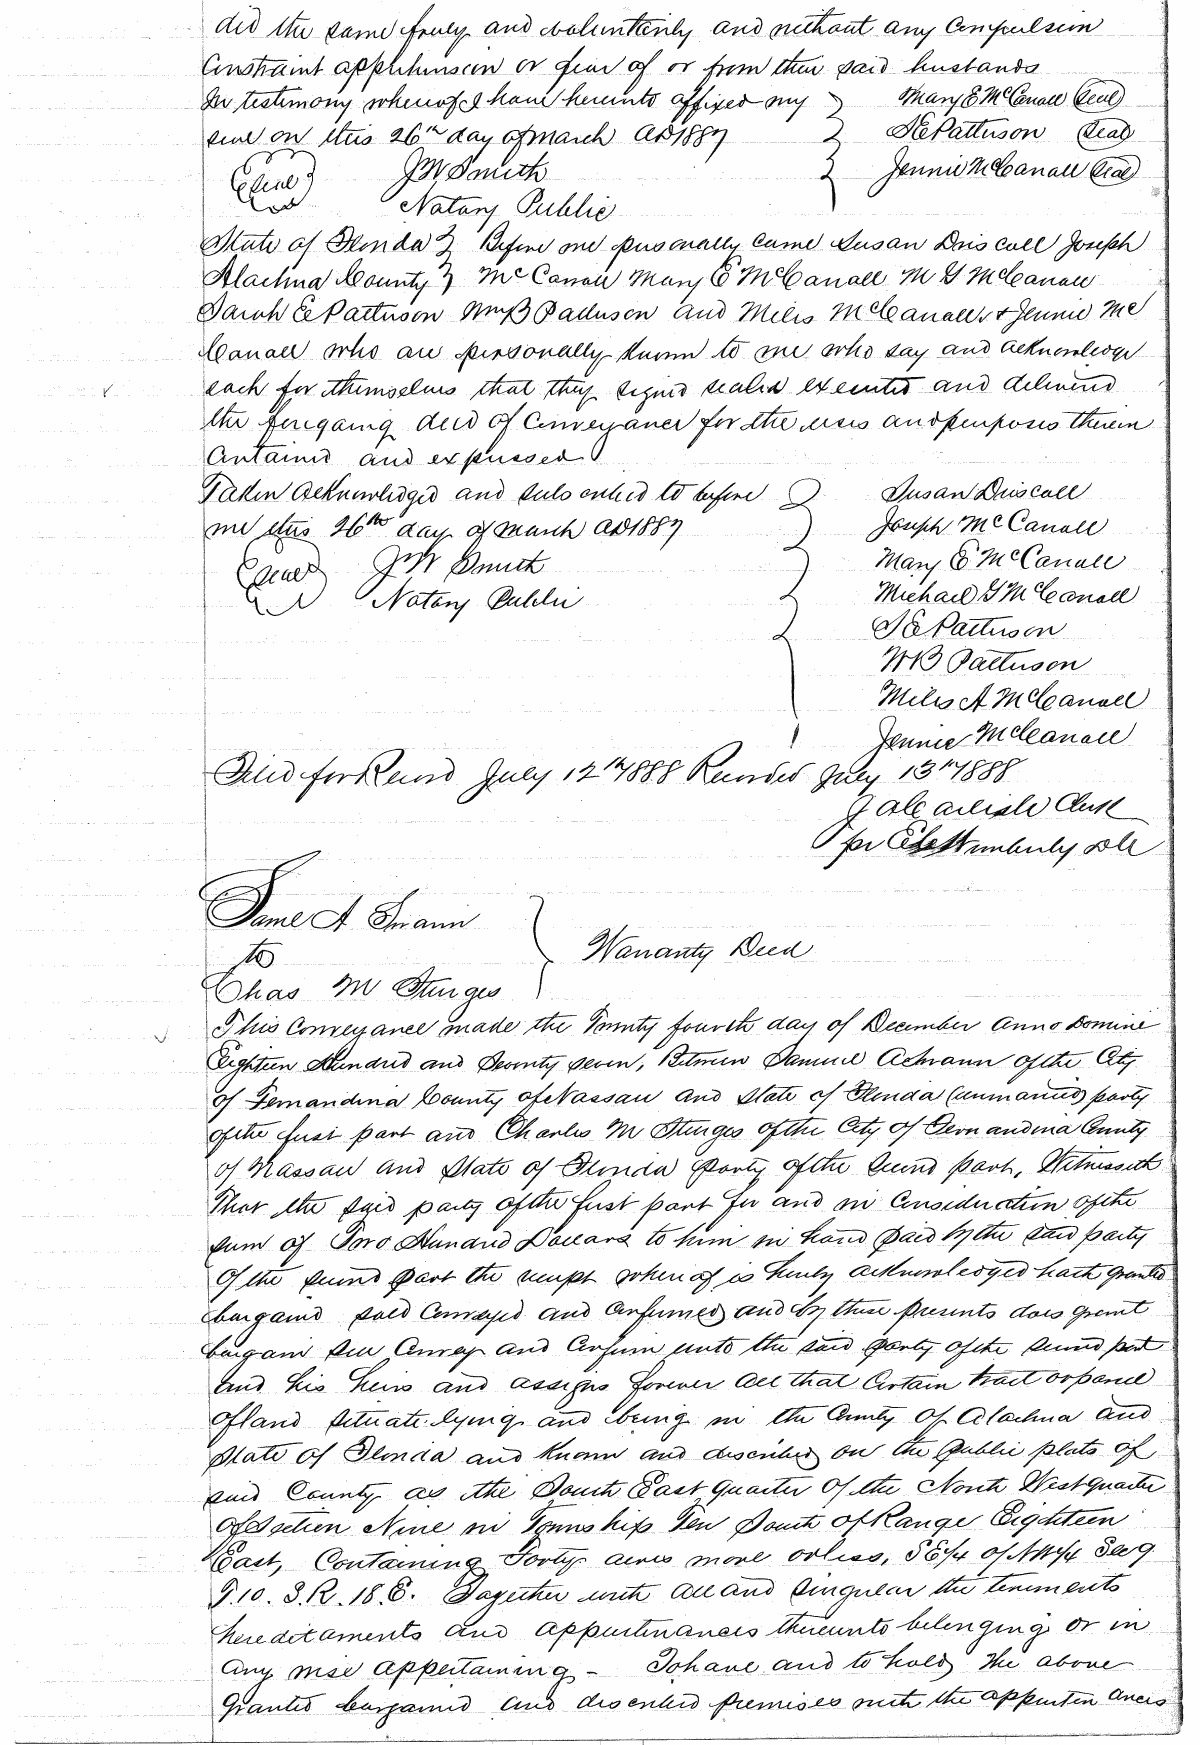 did the same freely and voluntarily and without any Compulsion
Constraint apprehension or fear of or from their said husbands
In testimony whereof I have hereunto affixed my } Mary E McCanall (Seal)
seal on this 26th day of March AD 1887 } S E Patterson (Seal)
(Seal) J W Smith } Jennie McCanall (Seal)
Notary Public
State of Florida } Before me personally came Susan Driscoll Joseph
Alachua County } McCanall Mary E McCanall M G McCanall
Sarah E Patterson Wm B Patterson and Miles McCanall & Jennie Mc
Canall who are personally known to me who say and acknowledge
each for themselves that they signed sealed executed and delivered
the foregoing deed of Conveyance for the uses and purposes therein
Contained and expressed
Taken Acknowledged and subscribed to before } Susan Driscoll
me this 26th day of March AD 1887 } Joseph McCanall
(Seal) J W Smith Mary E McCanall
Notary Public Michael G McCanall
S E Patterson
W B Patterson
Miles A McCanall
Jennie McCanall
Filed for Record July 12th 1888 Recorded July 13th 1888
J A Carlisle Clerk
per Wimberly DC
A Swann
to } Warranty Deed
Chas M Sturges
This Conveyance made the Twenty fourth day of December Anno Domini
Eighteen Hundred and Seventy seven, Between Samuel A Swann of the City
of Fernandina County of Nassau and State of Florida (unmarried) party
of the first part and Charles M Sturges of the City of Fernandina County
of Nassau and State of Florida Party of the Second part, Witnesseth
That the said party of the first part for and in Consideration of the
sum of Two Hundred Dollars to him in hand paid by the said party
of the second part the receipt whereof is hereby acknowledged hath granted
bargained sold Conveyed and Confirmed and by these presents does grant
bargain sell Convey and Confirm unto the said party of the second part
and his heirs and assigns forever All that Certain tract or parcel
of land situate lying and being in the County of Alachua and
State of Florida and known and described on the Public plats of
said County as the South East quarter of the North West quarter
of Section Nine in Township Ten South of Range Eighteen
East, Containing Forty acres more or less, SE1/4 of NW1/4 Sec 9
T. 10. S. R. 18. E. Together with all and singular the tenements
hereditaments and appurtenances thereunto belonging or in
any wise appertaining - To have and to hold the above
Granted bargained and described premises with the appurtenances